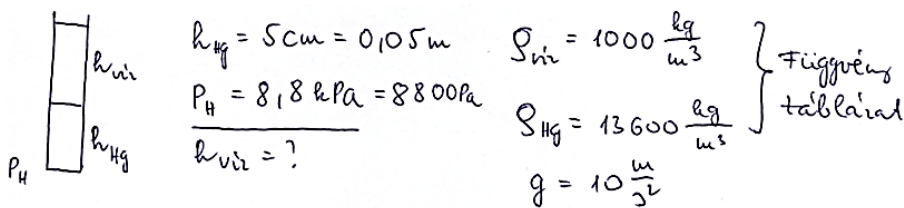 h_víz
h_Hg
P_H
h_Hg = 5cm = 0,05m
P_H = 8,8 kPa = 8800Pa
h_víz = ?
ρ_víz = 1000 kg/m³
ρ_Hg = 13600 kg/m³
g = 10 m/s²
Függvény
táblázat